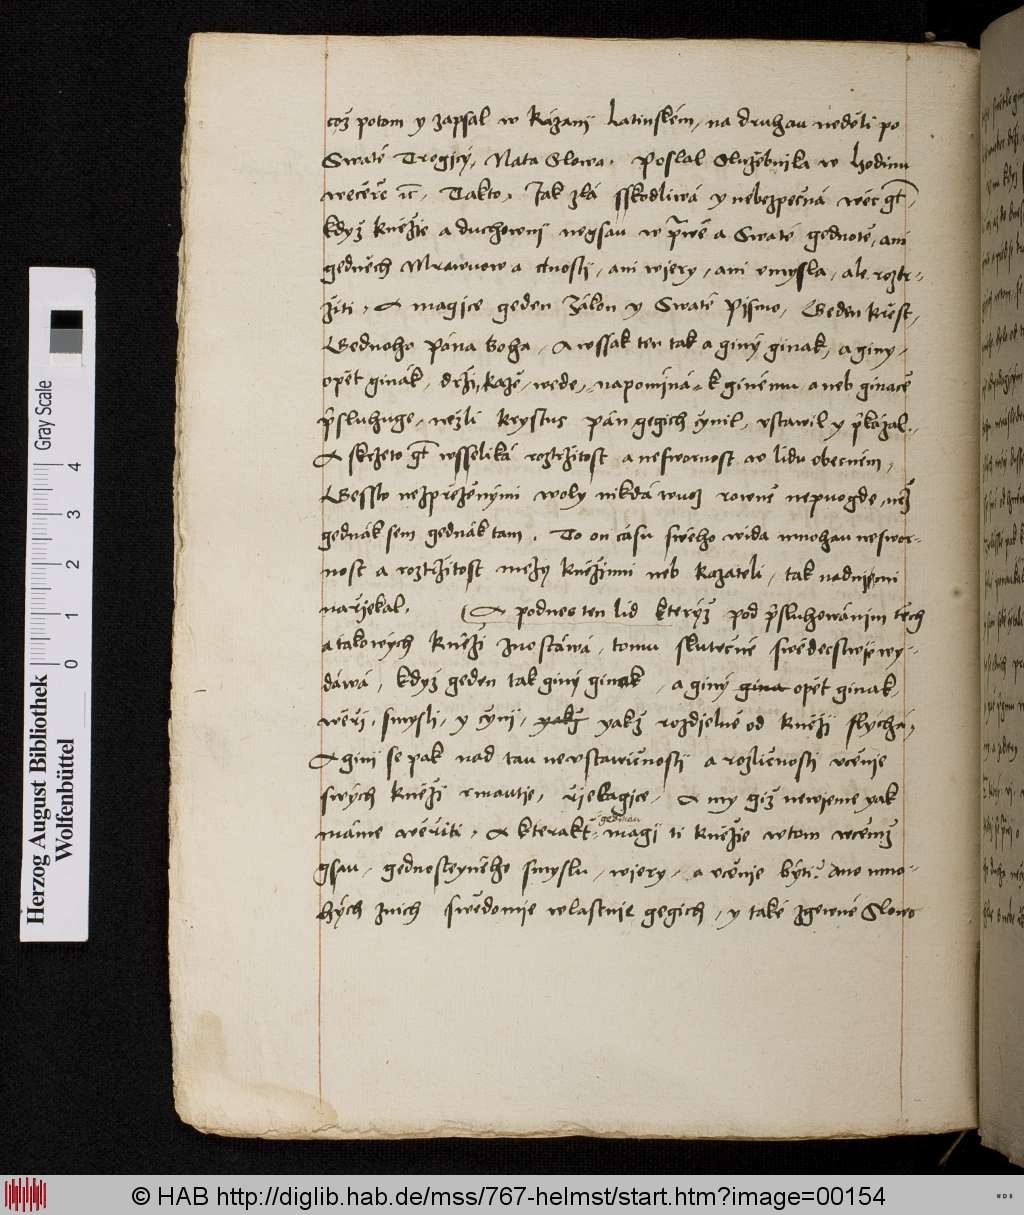 což potom y zapsal w Kázanj Latinském, na druhau neděli po
Swaté Trogicý, Na ta Slowa. Poslal Služebnika w hodinu
wečeře ꝛc. Takto, Jak zlá sskodliwá y nebezpečná wěc gt,
když kněžie a duchownj negsau w prwé a Swaté gednotě, ani
gedněch Mrawuow a ctnosti, ani wjery, ani vmysla, ale roztr-
žiti, A magice geden Zákon y Swaté Pjsmo, Geden křest,
Gednoho Pána Boha, A wssak ten tak a giný ginak, a giny,
opět ginák, drží, kaže, wede, napomíná, k ginému aneb ginače
přsluhuge, nežli Krystus pán gegich čynil, vstawil y přkázal.
A skrzeto gt wsselikà roztržitost a nesworno​st w lidu obecném,
Gessto nezpřeženými woly nikdá wuoz rowně nepuogde, než
gednák sem gednák tam. To on času swého wida mnohau neswor-
nost a roztržitost mezy kněžimi neb kazateli, tak nad nimi
nařjekal. A podnes ten lid kterýž pod přsluhowánim těch
a takowých kněžj zuostáwá, tomu skutečné swědectwje wy-
dáwá, když geden tak giný ginak, a giný gina opět ginak,
wěřj, smyslj, y čynj, yakž yakž rozdjelně od kněžj slýchá,
A ginj se pak nad tau nevstawičnostj a rozličnostj včenie
swých kněžj rmautie, řjekagice, A my giž newjeme yak
máme wěřiti, A kterakt magj ti kněžie w tom včemž
gednau
gsau, gednosteyného smyslu, wjery, a včenie býti? Ano mno-
hých znich swědomie wlastnie gegich, y také zgewné Slowo
Herzog August Bibliothek
Wolfenbüttel
0 1 2 3 4
Gray Scale
© HAB http://diglib.hab.de/mss/767-helmst/start.htm?image=00154
WDB